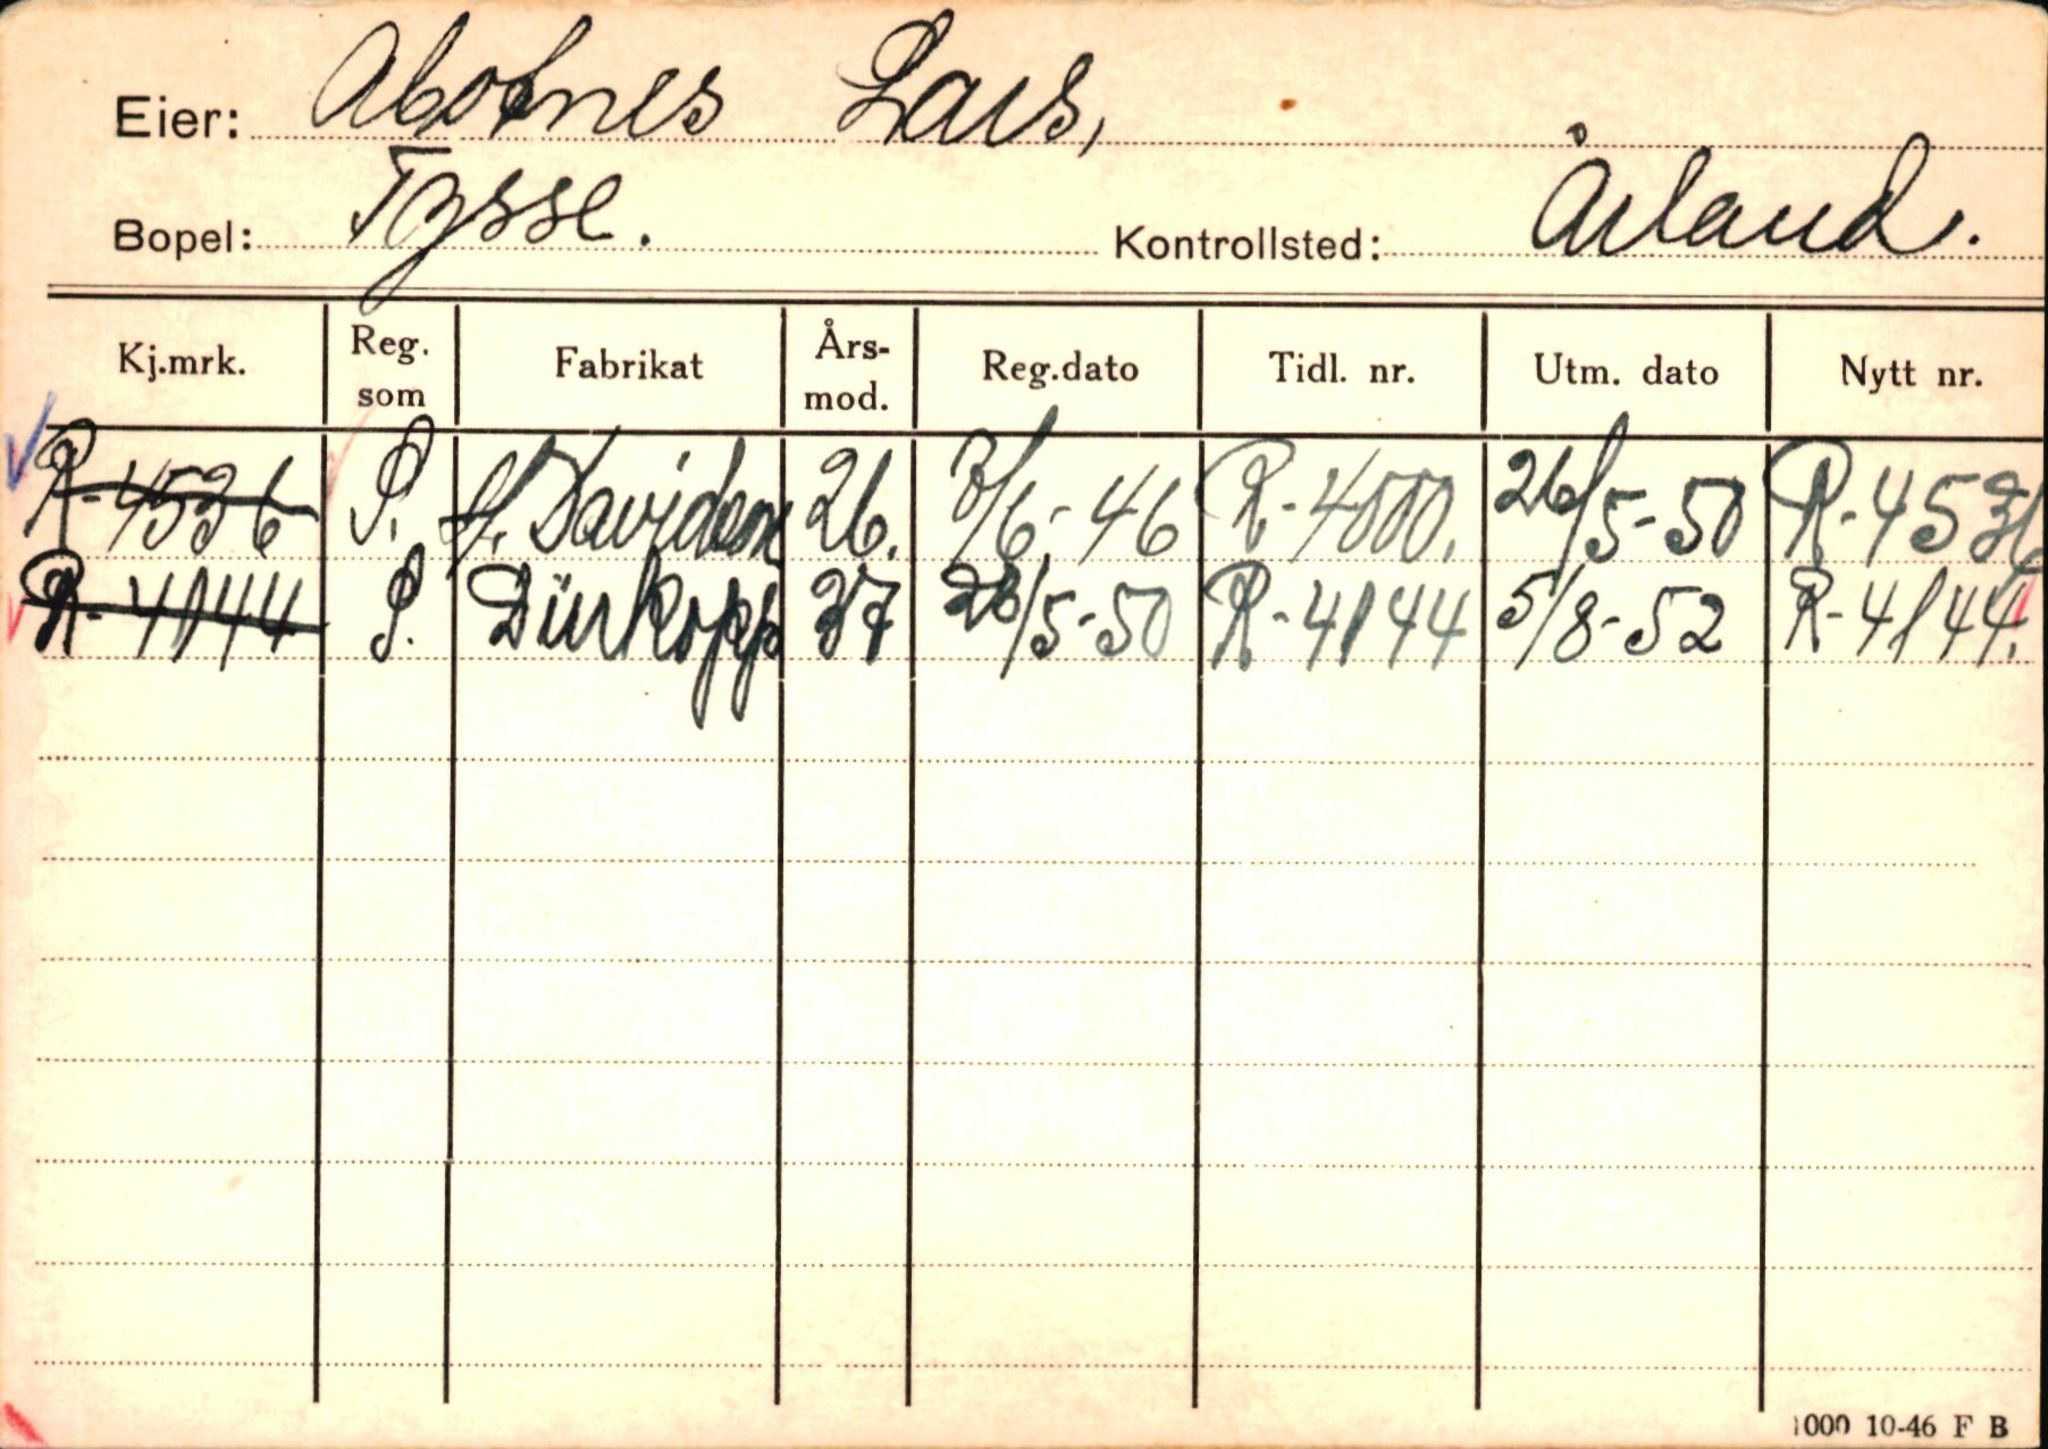 Eier: Abotnes Lars,
Bopel: Tysse. Kontrollsted: Årland.
Kj.mrk. Reg. som Fabrikat Års-mod. Reg.dato Tidl. nr. Utm. dato Nytt nr.
R-4536 P. H. Davidson 26. 3/6-46 R-4500. 26/5-50 R-4536
R-4144 P. Dürkopp 37 26/5-50 R-4144 5/8-52 R-4144.
1000 10-46 F B